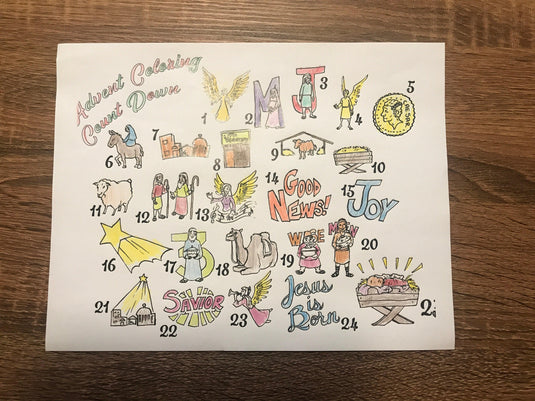 Advent Coloring
Count Down
1
2 M
J 3
4
5 CAESAR
6
7
8
9
10
11
12
13
14 GOOD
NEWS!
15 JOY
16
17 J
18
19 WISE
MEN 20
21
22 SAVIOR
23
24 Jesus
is
Born